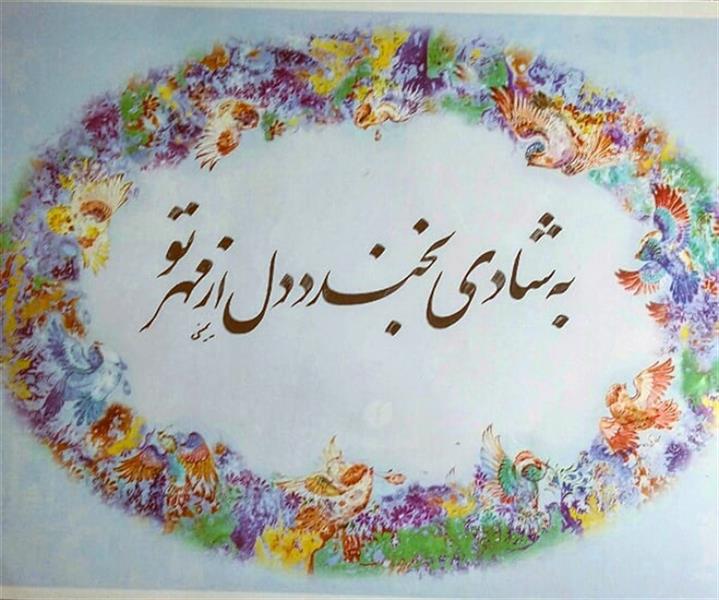 به شادی بخندد دل از مهر تو